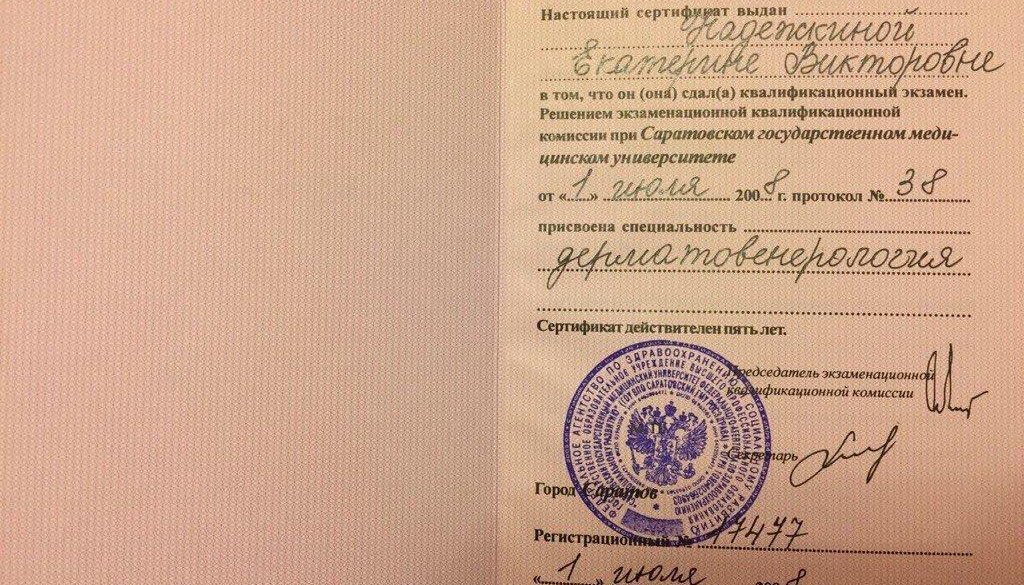 Настоящий сертификат выдан
Надежкиной
Екатерине Викторовне
в том, что он (она) сдал(а) квалификационный экзамен.
Решением экзаменационной квалификационной
комиссии при Саратовском государственном меди-
цинском университете
от «1» июля 2008 г. протокол № 38
присвоена специальность
дерматовенерология
Сертификат действителен пять лет.
ФЕДЕРАЛЬНОЕ АГЕНТСТВО ПО ЗДРАВООХРАНЕНИЮ И СОЦИАЛЬНОМУ РАЗВИТИЮ
Председатель экзаменационной
квалификационной комиссии
Секретарь
Город Саратов
Регистрационный № 17477
«1 июля 2008